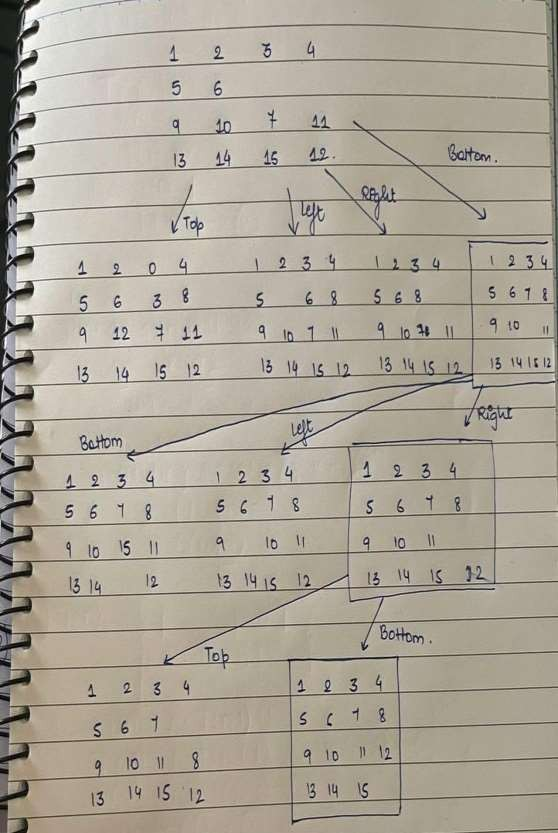 1 2 3 4
5 6
9 10 7 11
13 14 15 12.
Top
Left
Right
Bottom.
1 2 0 4
5 6 3 8
9 12 7 11
13 14 15 12
1 2 3 4
5 6 8
9 10 7 11
13 14 15 12
1 2 3 4
5 6 8
9 10 11
13 14 15 12
1 2 3 4
5 6 7 8
9 10 11
13 14 15 12
Bottom
Left
Right
1 2 3 4
5 6 7 8
9 10 15 11
13 14 12
1 2 3 4
5 6 7 8
9 10 11
13 14 15 12
1 2 3 4
5 6 7 8
9 10 11
13 14 15 12
Top
Bottom.
1 2 3 4
5 6 7
9 10 11 8
13 14 15 12
1 2 3 4
5 6 7 8
9 10 11 12
13 14 15